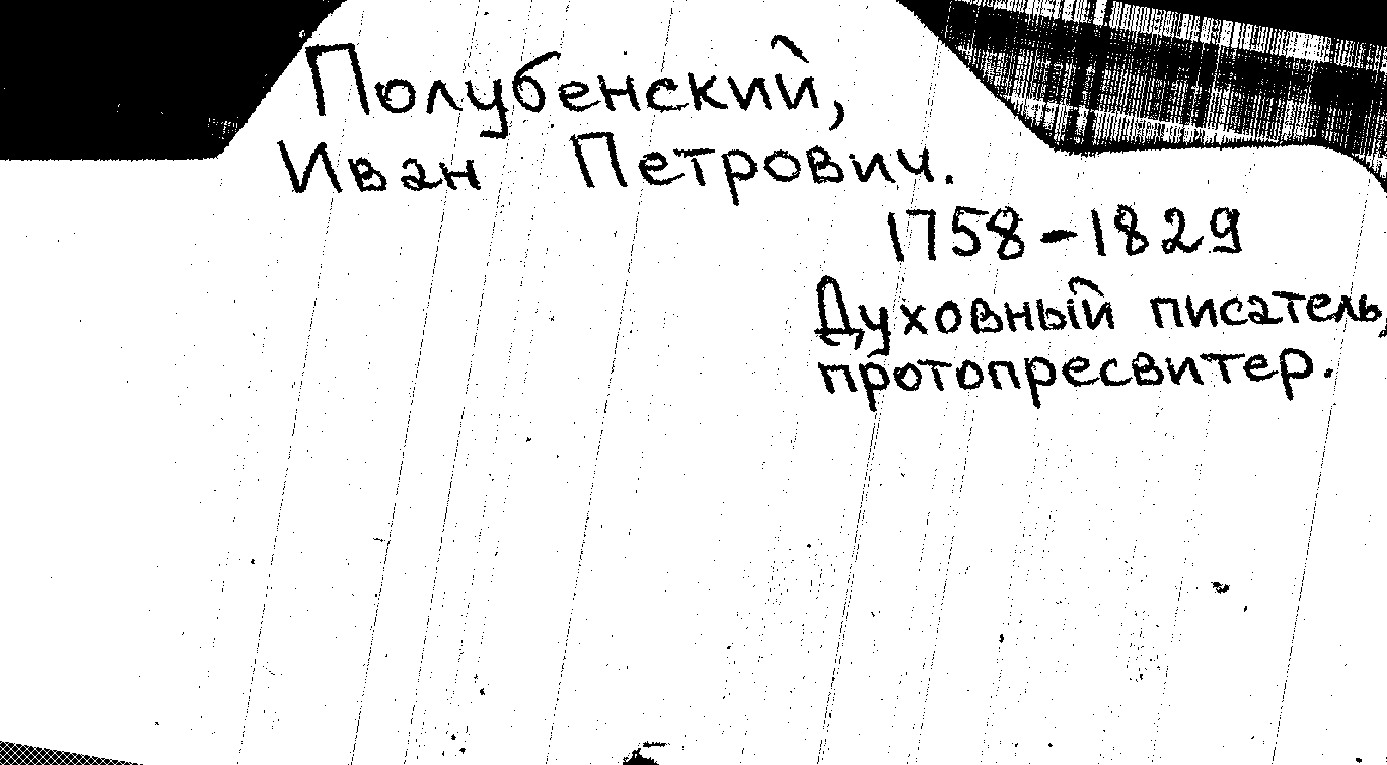 Полубенский,
Иван Петрович.
1758-1829
Духовный писатель,
протопресвитер.